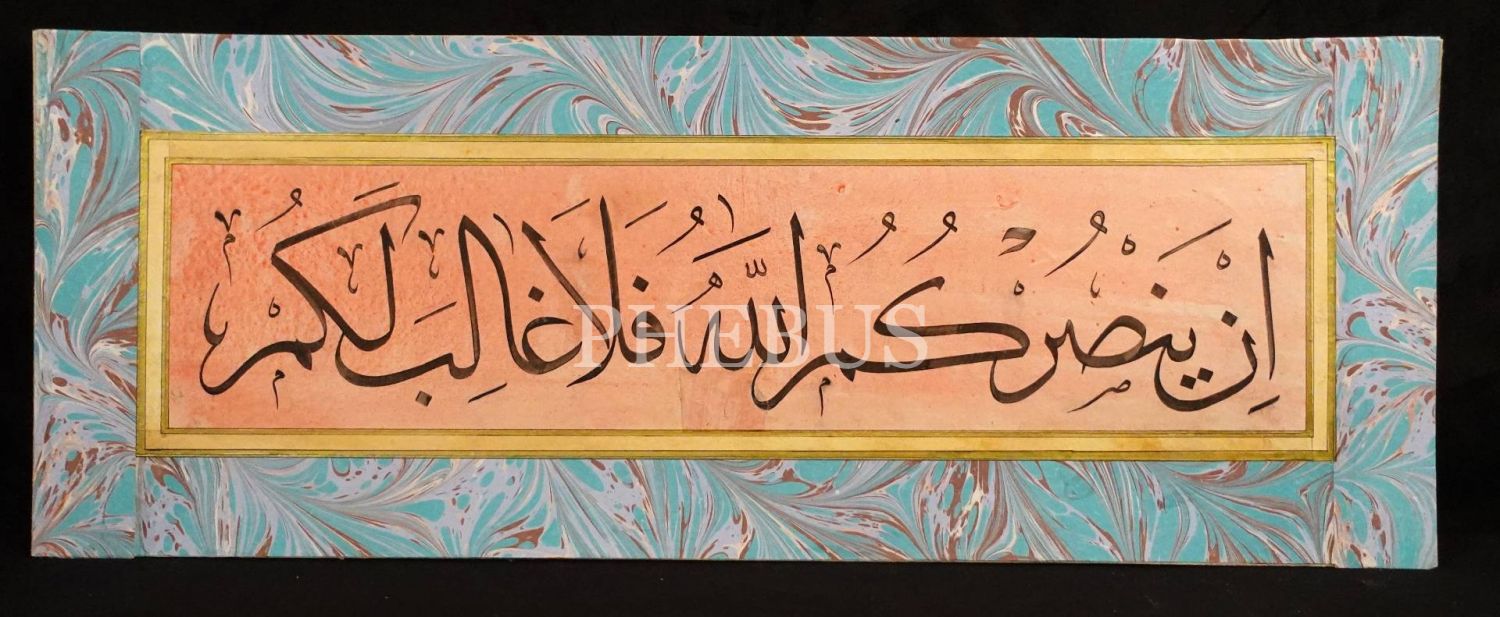 اِنْ يَنْصُرْكُمُ اللّٰهُ فَلَا غَالِبَ لَكُمْ
PHEBUS